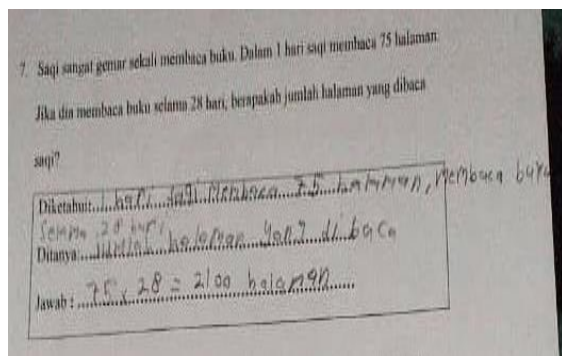 7. Saqi sangat gemar sekali membaca buku. Dalam 1 hari saqi membaca 75 halaman.
Jika dia membaca buku selama 28 hari, berapakah jumlah halaman yang dibaca
saqi?
Diketahui:...1 hari saqi membaca 75 halaman, membaca buku
selama 28 hari
Ditanya:...Jumlah halaman yang di baca
Jawab : ...75 x 28 = 2100 halaman......